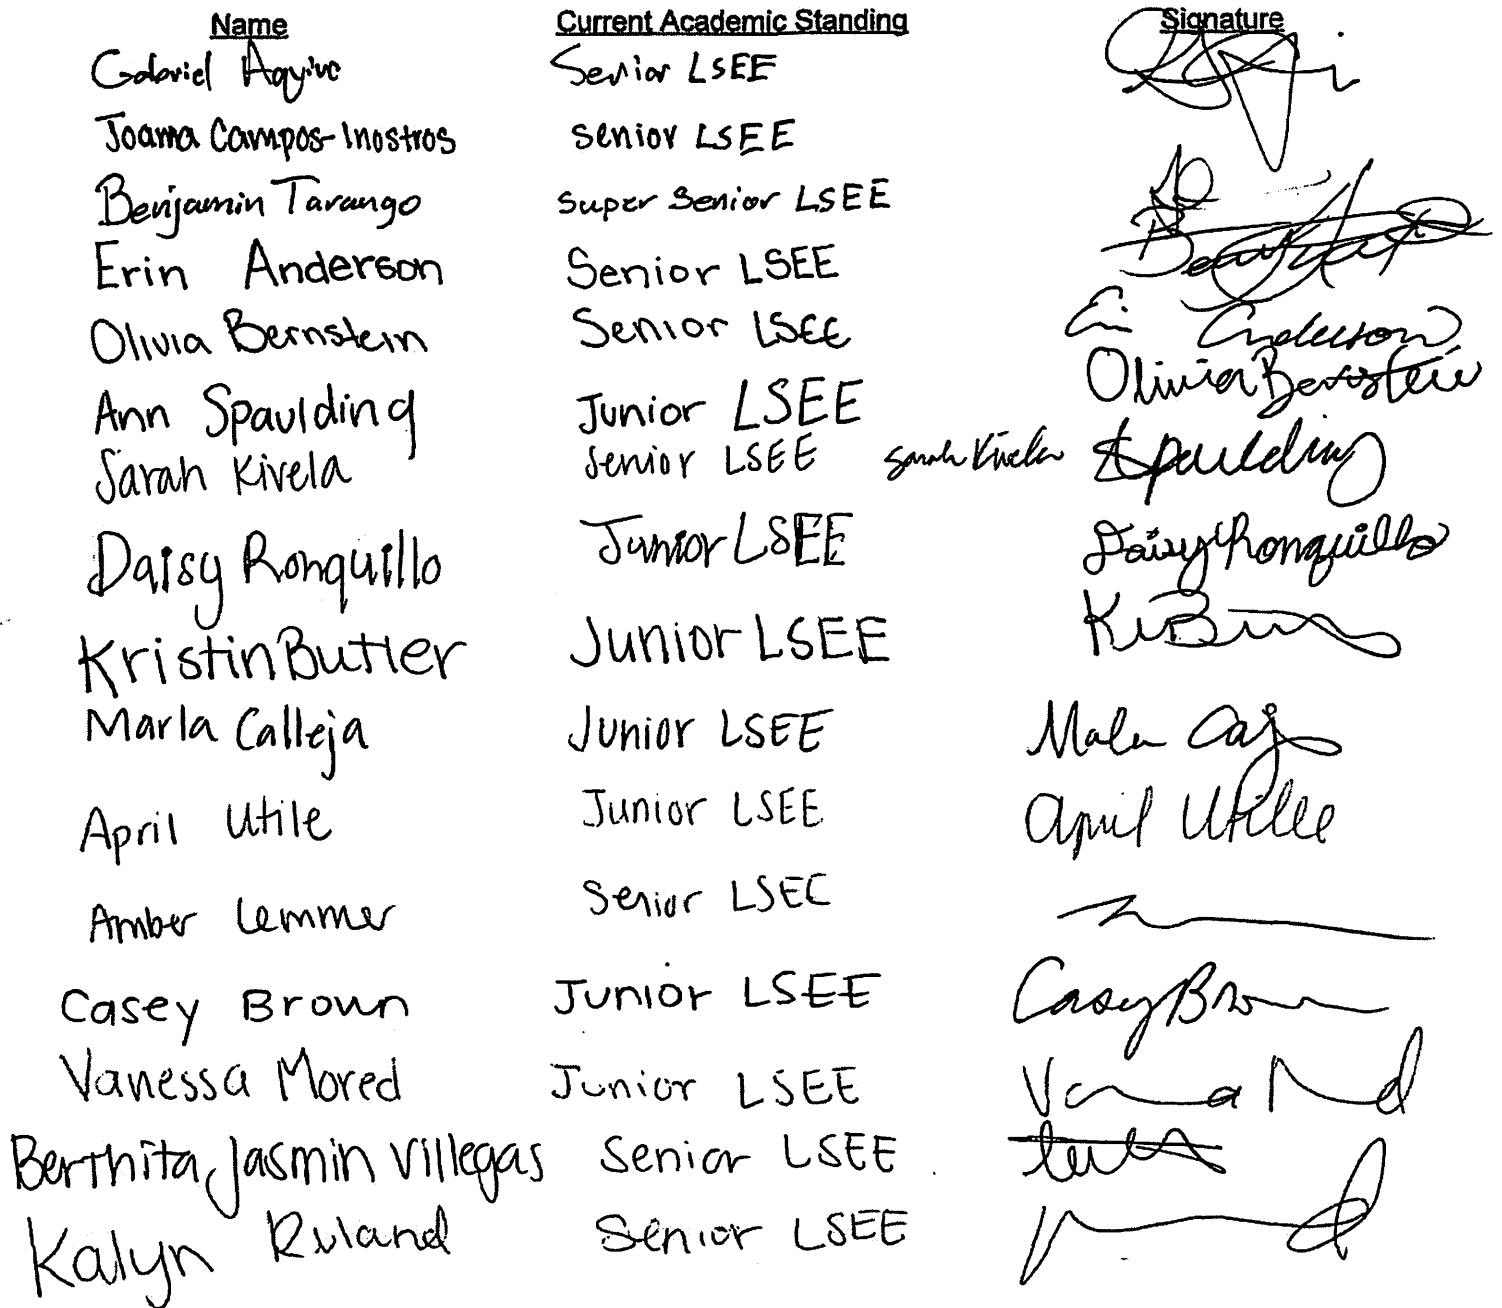 Name Current Academic Standing Signature
Gabriel Aquino Senior LSEE
Joama Campos-Inostros senior LSEE
Benjamin Tarango super senior LSEE
Erin Anderson Senior LSEE
Olivia Bernstein Senior LSEE Anderson
Ann Spaulding Junior LSEE Olivia Bernstein
Sarah Kivela Senior LSEE Sarah Kivela Spaulding
Daisy Ronquillo Junior LSEE Daisy Ronquillo
Kristin Butler Junior LSEE
Marla Calleja Junior LSEE
April Utile Junior LSEE April Utile
Amber Lemmer Senior LSEE
Casey Brown Junior LSEE Casey Brown
Vanessa Mored Junior LSEE
Berthita Jasmin Villegas Senior LSEE
Kalyn Ruland Senior LSEE